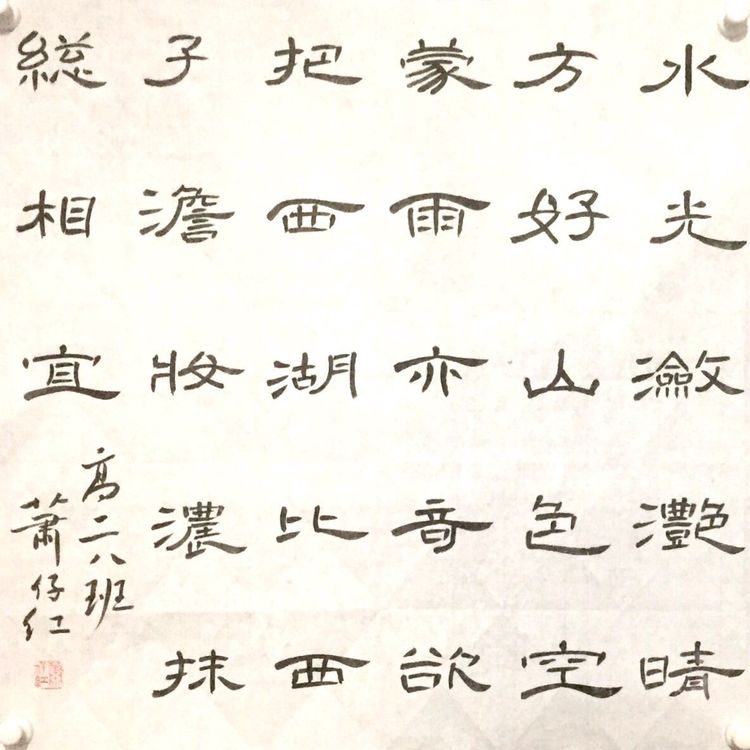 水光瀲灧晴
方好山色空
蒙雨亦音欲
把西湖比西
子澹妝濃抹
総相宜
高二八班
蕭仔红